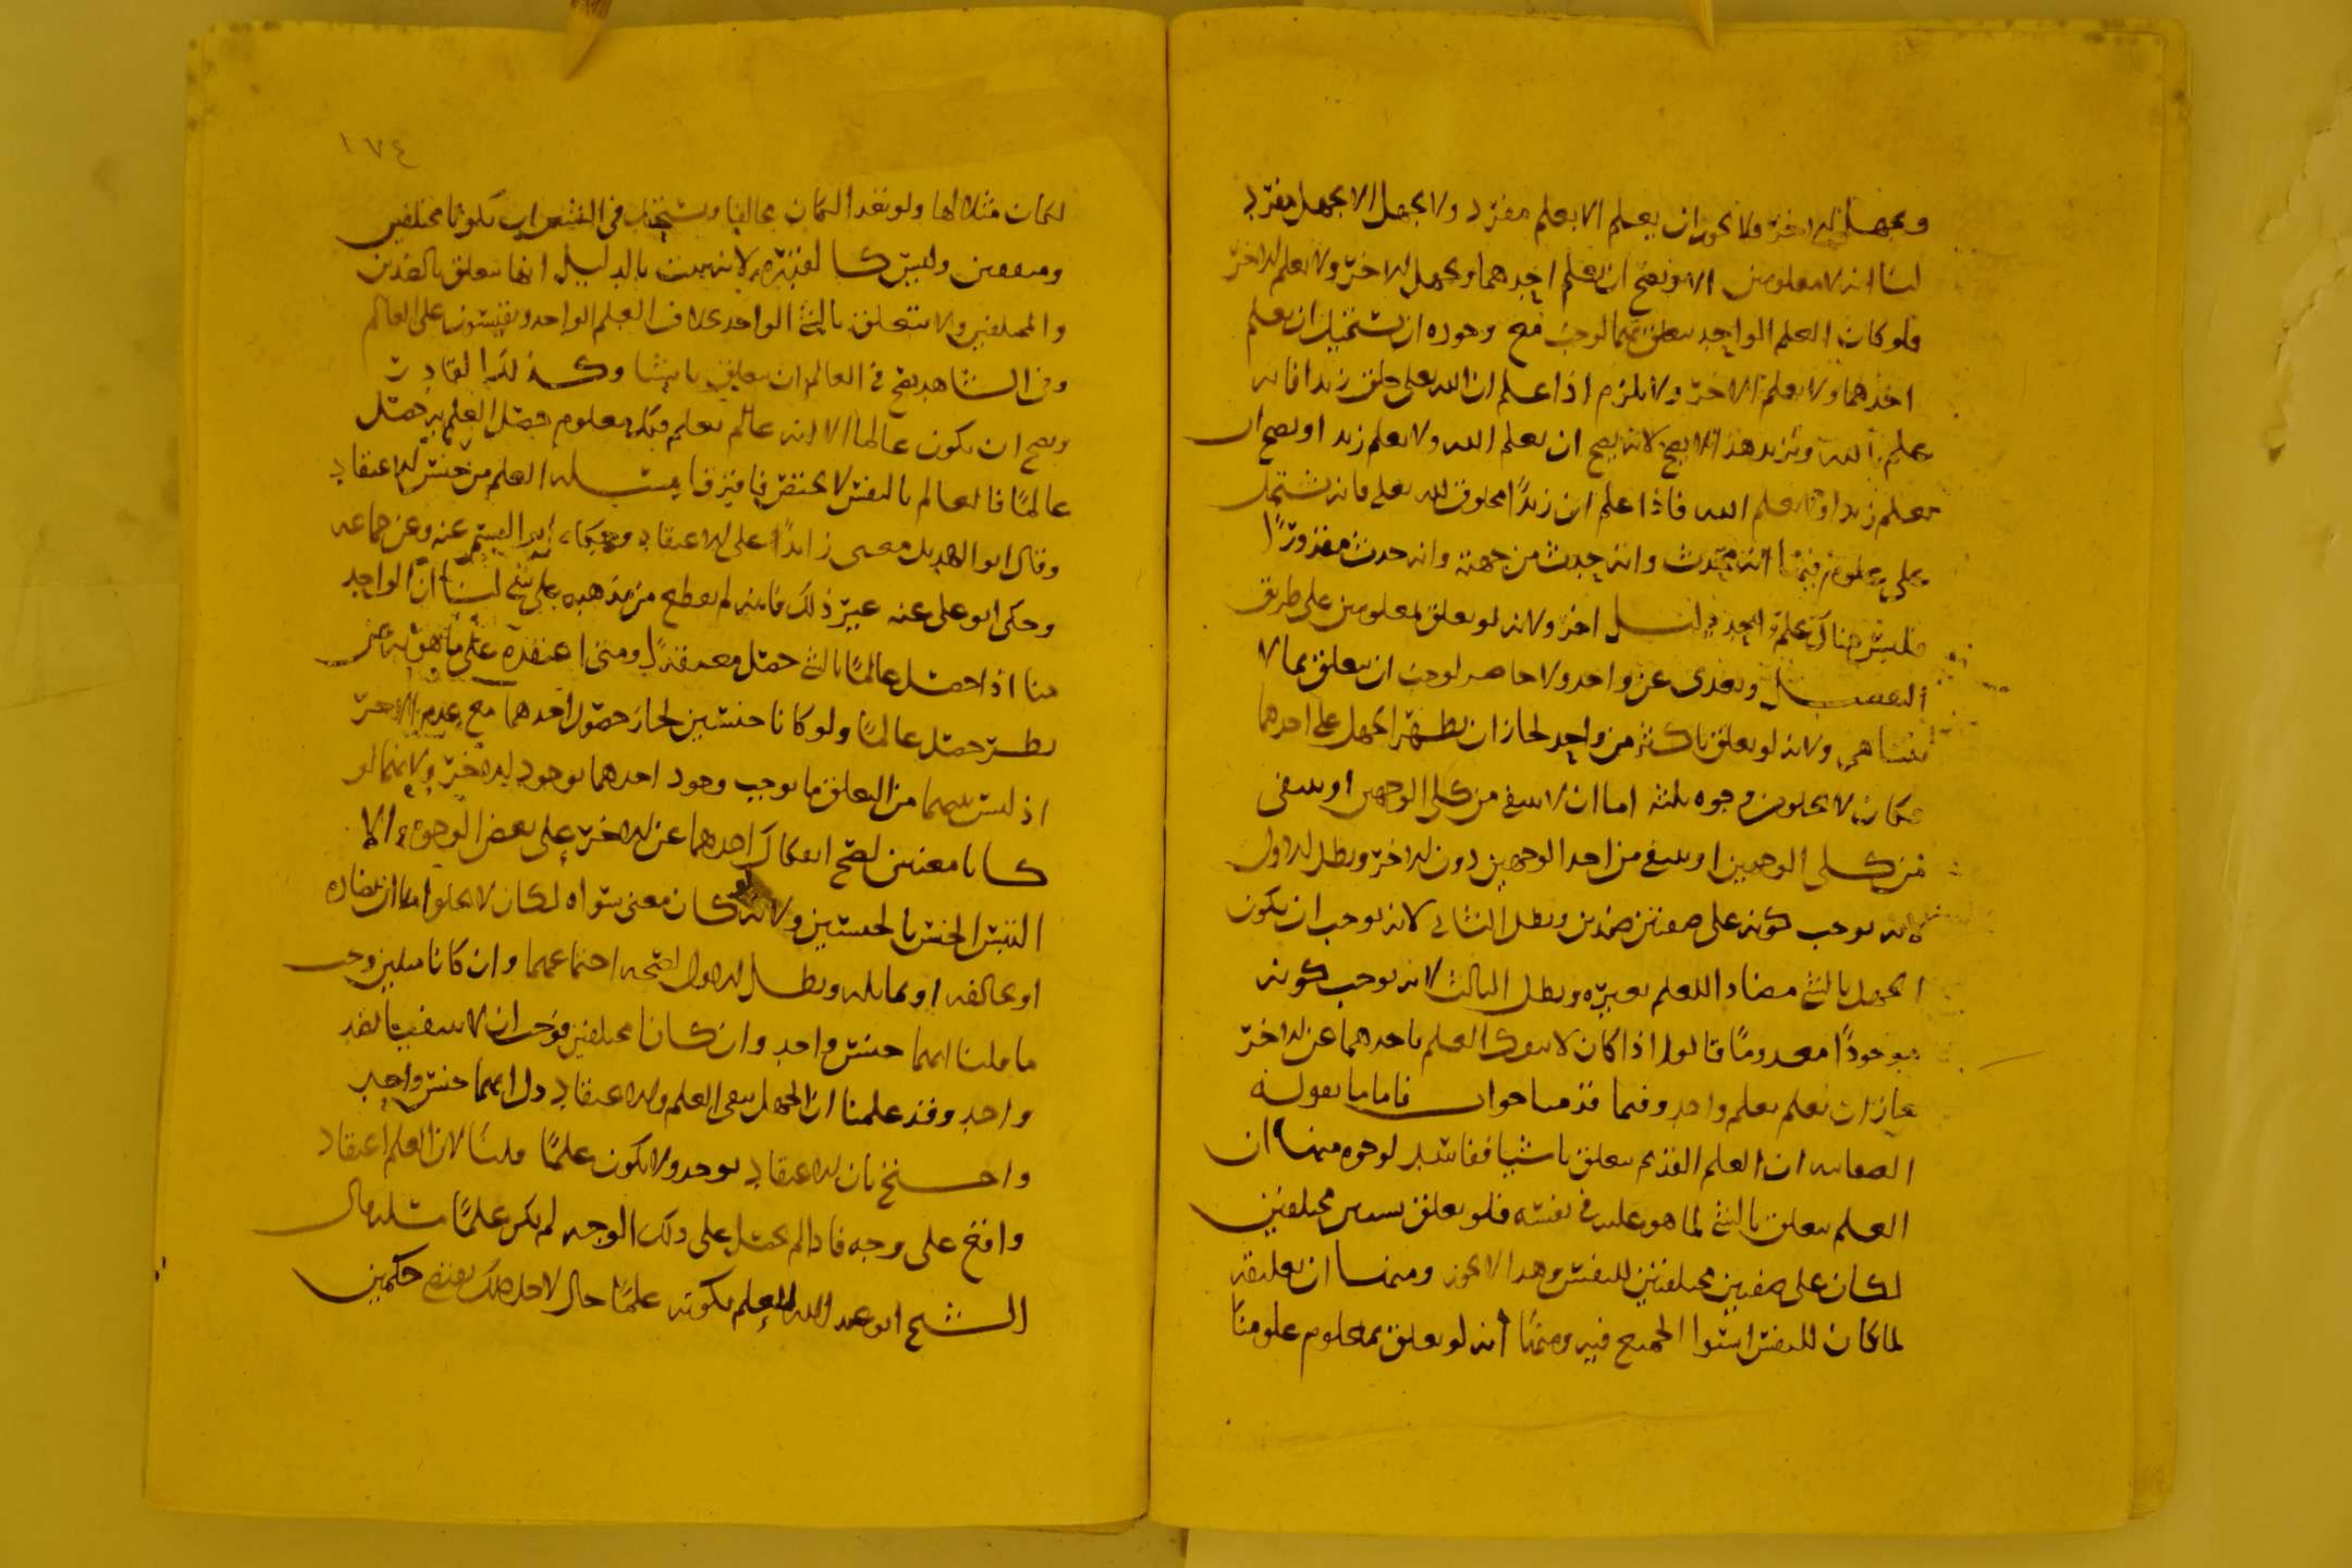 ويجهل الاخر ولا يجوز ان يعلم الا بعلم مفرد ولا يجهل الا بجهل مفرد
لنا انه لا معلومين الا ويصح ان يعلم احدهما ويجهل الاخر ولا يعلم الاخر
فلو كان العلم الواحد يتعلق بهما لوجب مع وجوده ان يستحيل ان يعلم
احدهما ولا يعلم الاخر ولا يلزم اذا علم ان الله تعلى خلق زيدا فانه
علم الله وزيد هذا لا يصح لانه يصح ان يعلم الله ولا يعلم زيد او يصح ان
يعلم زيدا ولا يعلم الله فاذا علم ان زيدًا مخلوق لله تعلى فانه يشتمل
على علوم منها انه محدث وانه حدث من جهته وانه حدث مقدورًا
فليس هناك علم واحد دليل اخر ولانه لو تعلق بمعلومين على طريق
التفصيل وتعدى عن واحد ولا حاصر لوجب ان يتعلق بما لا
يتناهى ولانه لو تعلق باكثر من واحد لجاز ان يظهر الجهل على احدهما
فكان لا يخلو من وجوه ثلثة اما ان لا ينتفي من كلى الوجهين او ينتفى
من كلى الوجهين او ينتفى من احد الوجهين دون الاخر وبطل الاول
لانه يوجب كونه على صفتين ضدين وبطل الثانى لانه يوجب ان يكون
الجهل بالشي مضادا للعلم بغيره وبطل الثالث لانه يوجب كونه
موجودًا معدومًا قالوا اذا كان لا ينفك العلم باحدهما عن الاخر
جاز ان يعلم بعلم واحد وفيما قدمنا جواب فاما ما يقوله
الصفاتيه ان العلم القديم يتعلق باشيا ففاسد لوجوه منها ان
العلم يتعلق بالشي لما هو عليه في نفسه فلو تعلق بشيين مختلفين
لكان على صفتين مختلفتين للنفس وهذا لا يجوز ومنها ان تعليقه
لما كان للنفس استوا الجميع فيه ومنها انه لو تعلق بمعلوم علومنا
١٧٤
لكان مثلا لها ولو تعدا لكان مخالفا ويستحيل في الشي ان يكون مختلفين
ومتفقين وليس كالقدره لانه يثبت بالدليل انها تتعلق بالضدين
والمختلفين ولا تتعلق بالشي الواحد بخلاف العلم الواحد ويقيسون على العالم
وفى الشاهد يصح في العالم ان يتعلق باشيا وكذلك القادر
ويصح ان يكون عالما الا انه عالم بعلم فكل معلوم حصل العلم به حصل
عالمًا فالعالم بالنفس لا يختص فافترقا مسله العلم من جنس الاعتقاد
وقال ابو الهذيل معنى زايدًا على الاعتقاد وحكاه ابو القسم عنه وعن جماعه
وحكى ابو على عنه غير ذلك فانه لم يقطع من مذهبه على شي لنا ان الواحد
منا اذا حصل عالمًا بالشي حصل معتقدًا ومتى اعتقده على ما هو به عن
نظر حصل عالمًا ولو كانا جنسين لجاز حصول احدهما مع عدم الاخر
اذ ليس بينهما من التعلق ما يوجب وجود احدهما بوجود الاخر ولانهما لو
كانا معنيين لصح انفكاك احدهما عن الاخر على بعض الوجوه والا
التبس الجنس بالجنسين ولانه لو كان معنى سواه لكان لا يخلوا اما ان يضاده
او يخالفه او يماثله وبطل الاول لصحه اجتماعهما وان كانا مثلين وجب
ما قلنا انهما جنس واحد وان كانا مختلفين فوجب ان لا ينتفيا بضد
واحد وقد علمنا ان الجهل ينفى العلم والاعتقاد دل انهما جنس واحد
واحتج بان الاعتقاد يوجد ولا يكون علمًا قلنا لان العلم اعتقاد
واقع على وجه فاذا لم يحصل على ذلك الوجه لم يكن علمًا مسله قال
الشيخ ابو عبد الله للعلم بكونه علمًا حال لاجل ذلك يقتضى حكمين